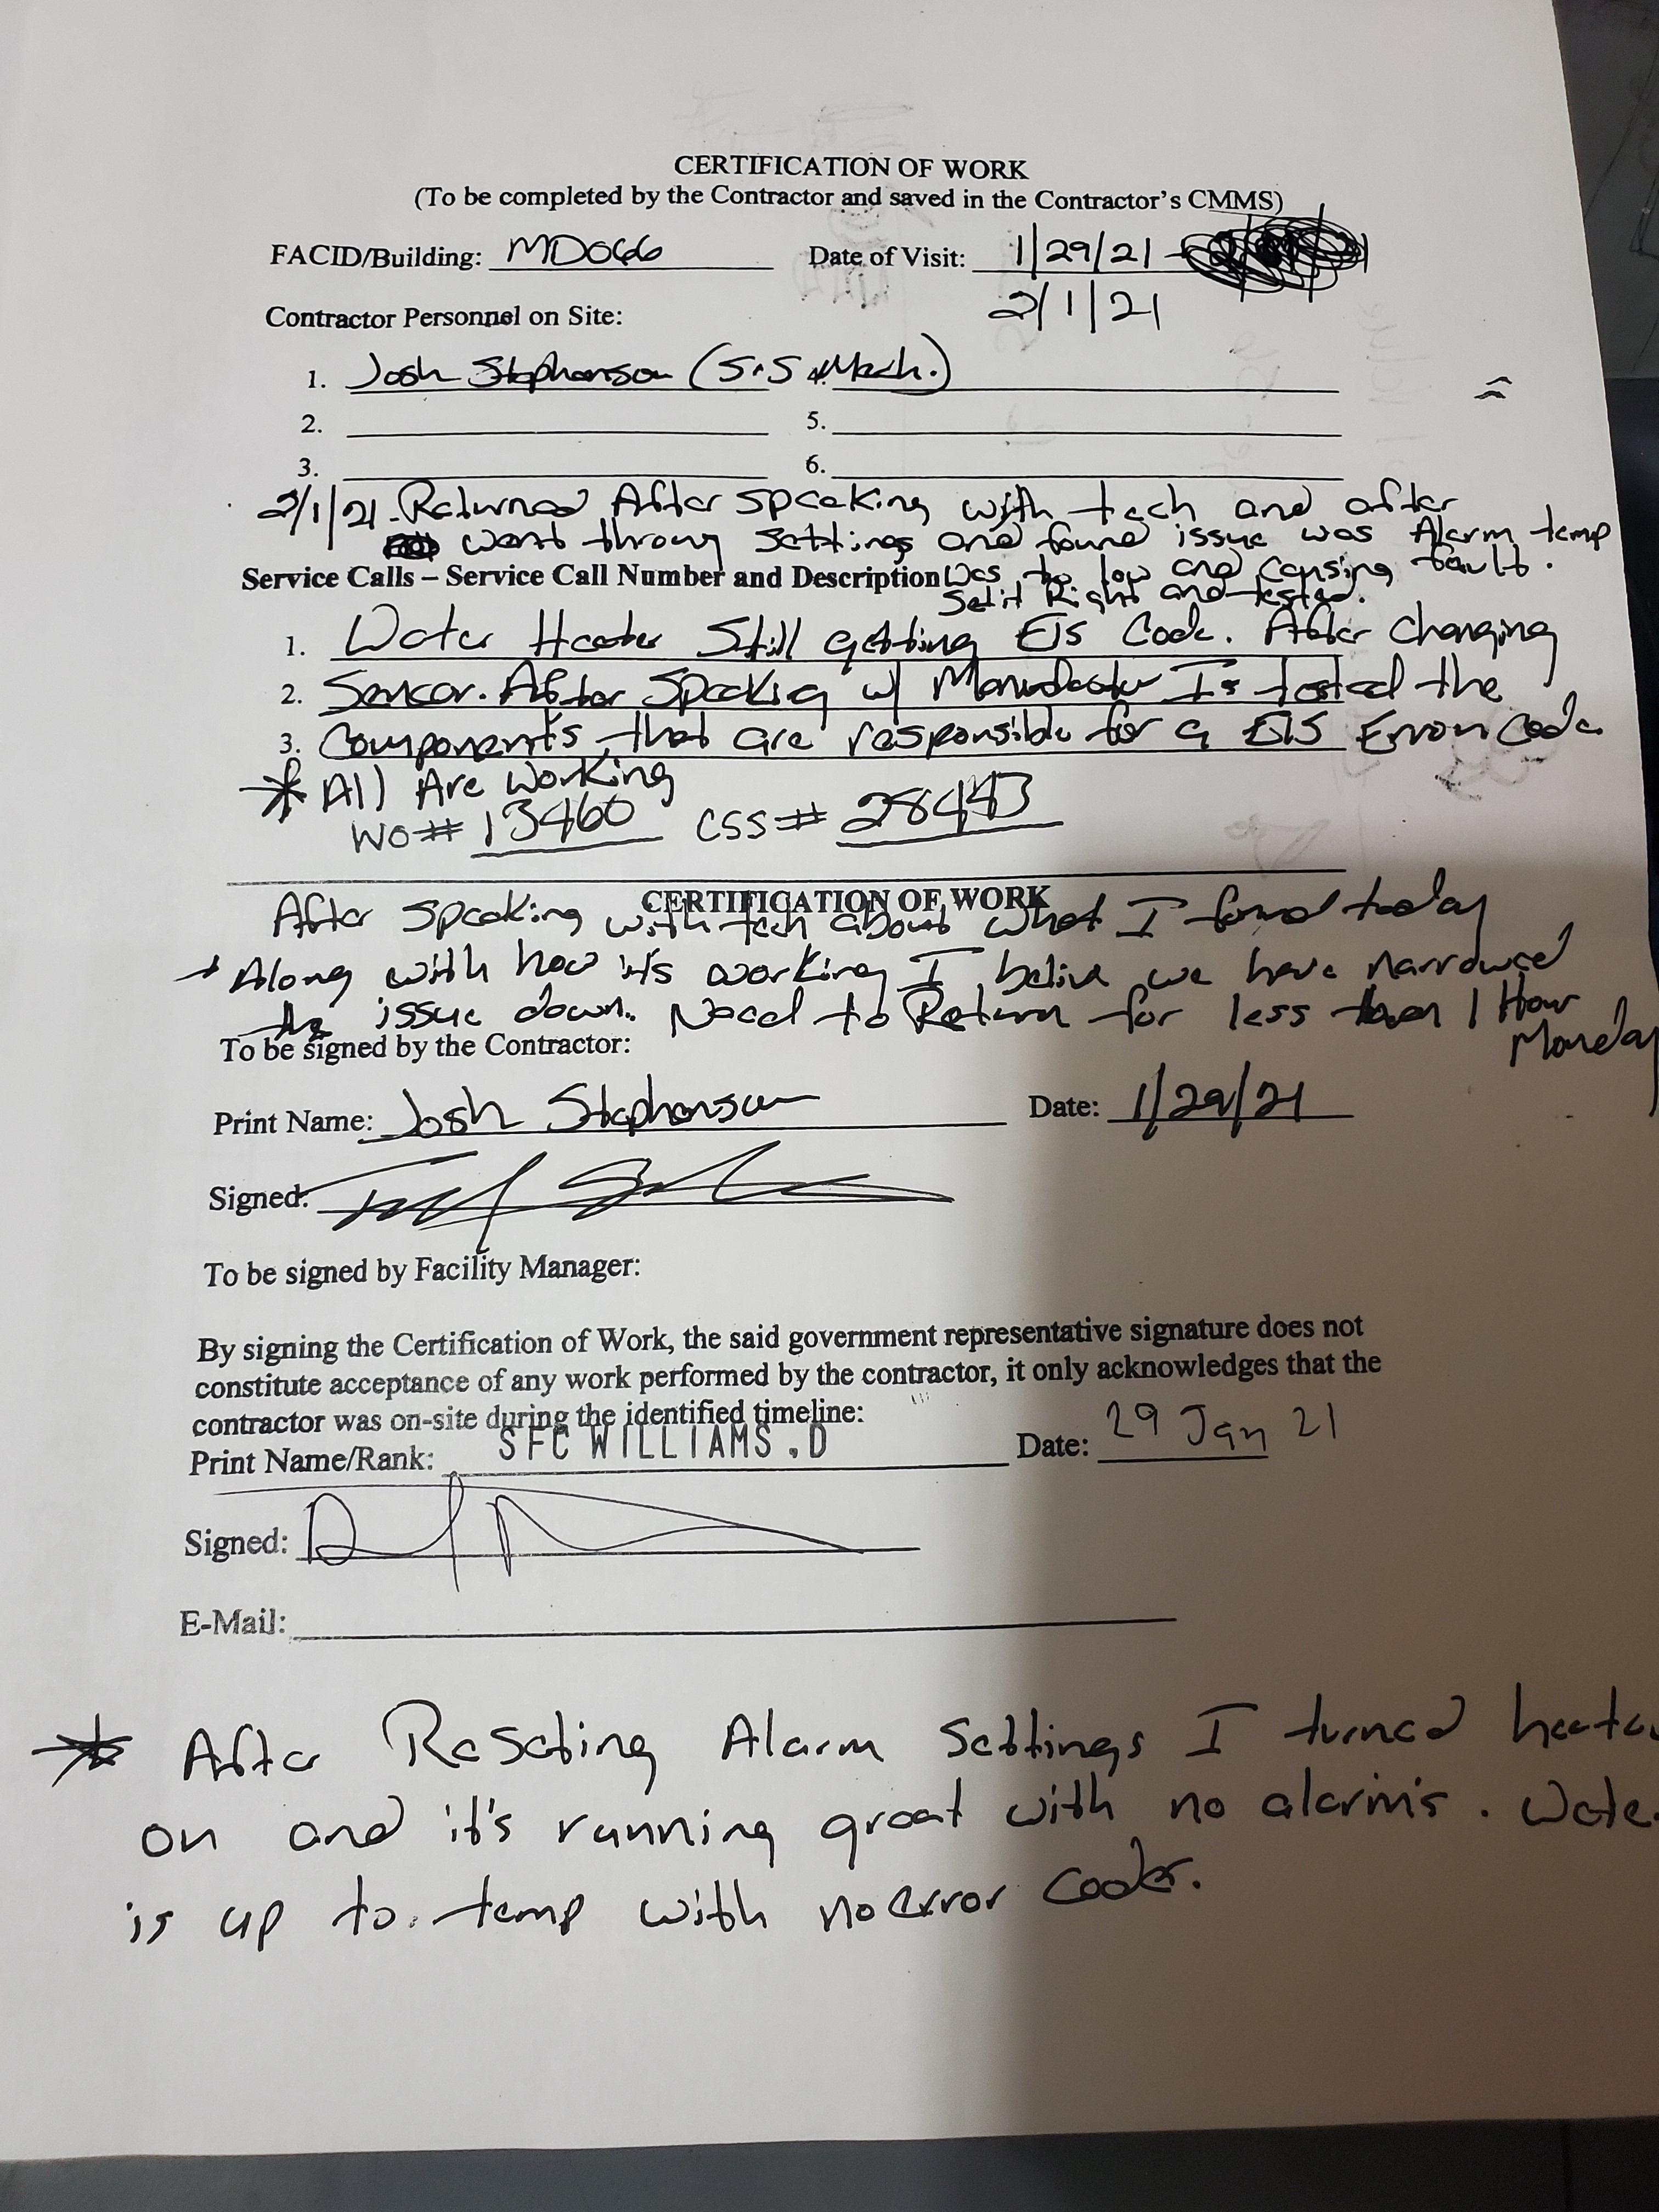 CERTIFICATION OF WORK
(To be completed by the Contractor and saved in the Contractor's CMMS)
FACID/Building: MD066 Date of Visit: 1/29/21 -
2/1/21
Contractor Personnel on Site:
1. Josh Stephenson (S.S. Mech.)
2. 5.
3. 6.
2/1/21 - Returned After speaking with tech and after
went throug settings and found issue was Alarm temp
Service Calls – Service Call Number and Description was to low and causing fault.
Set it Right and tested.
1. Water Heater Still getting E15 Code. After changing
2. Sensor. After Speaking w/ I tested the
3. Components that are responsible for a E15 Error Code
* All Are Working
WO# 13460 CSS# 28443
CERTIFICATION OF WORK
After speaking with tech about what I found today
Along with how it's working I belive we have narrowed
the issue down. Need to Return for less than 1 Hour
Monday
To be signed by the Contractor:
Print Name: Josh Stephenson Date: 1/29/21
Signed:
To be signed by Facility Manager:
By signing the Certification of Work, the said government representative signature does not
constitute acceptance of any work performed by the contractor, it only acknowledges that the
contractor was on-site during the identified timeline:
Print Name/Rank: SFC WILLIAMS .D Date: 29 Jan 21
Signed:
E-Mail:
* After Reseting Alarm Settings I turned heater
on and it's running great with no alarm's. Water
is up to temp with no error codes.